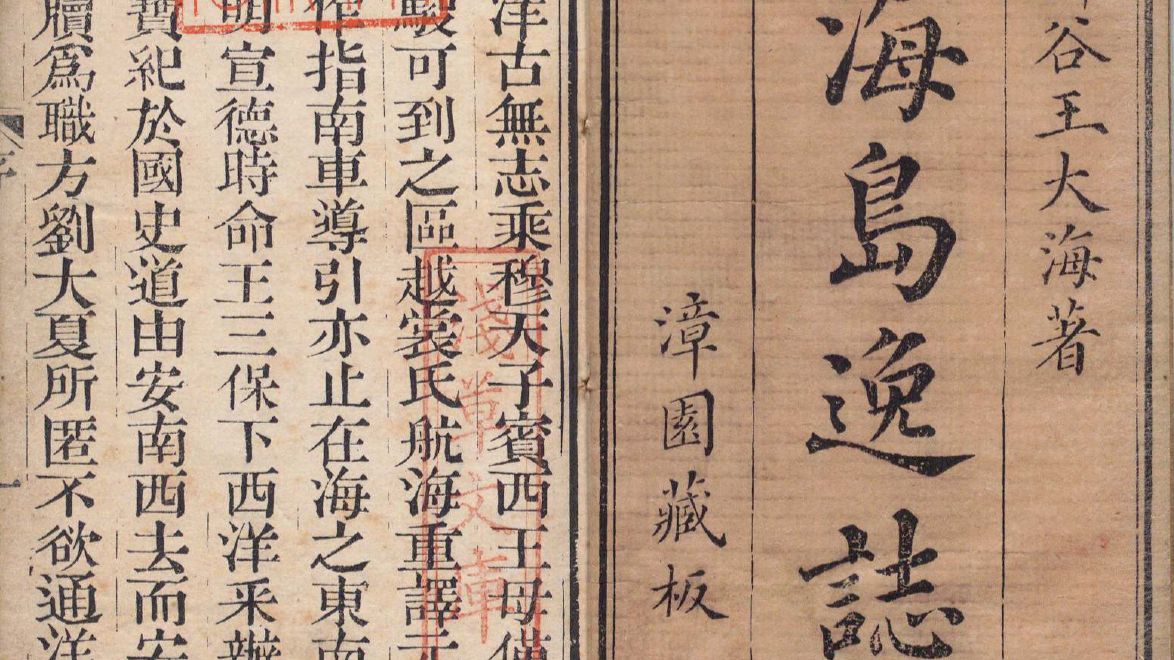 谷王大海著
海島逸誌
漳園藏板
洋古無志乘穆天子賓西王母僅
駿可到之區越裳氏航海重譯
作指南車導引亦止在海之東南
明宣德時命王三保下西洋采辦
寶紀於國史道由安南西去而安
牘為職方劉大夏所匿不欲通洋
文章
序
一